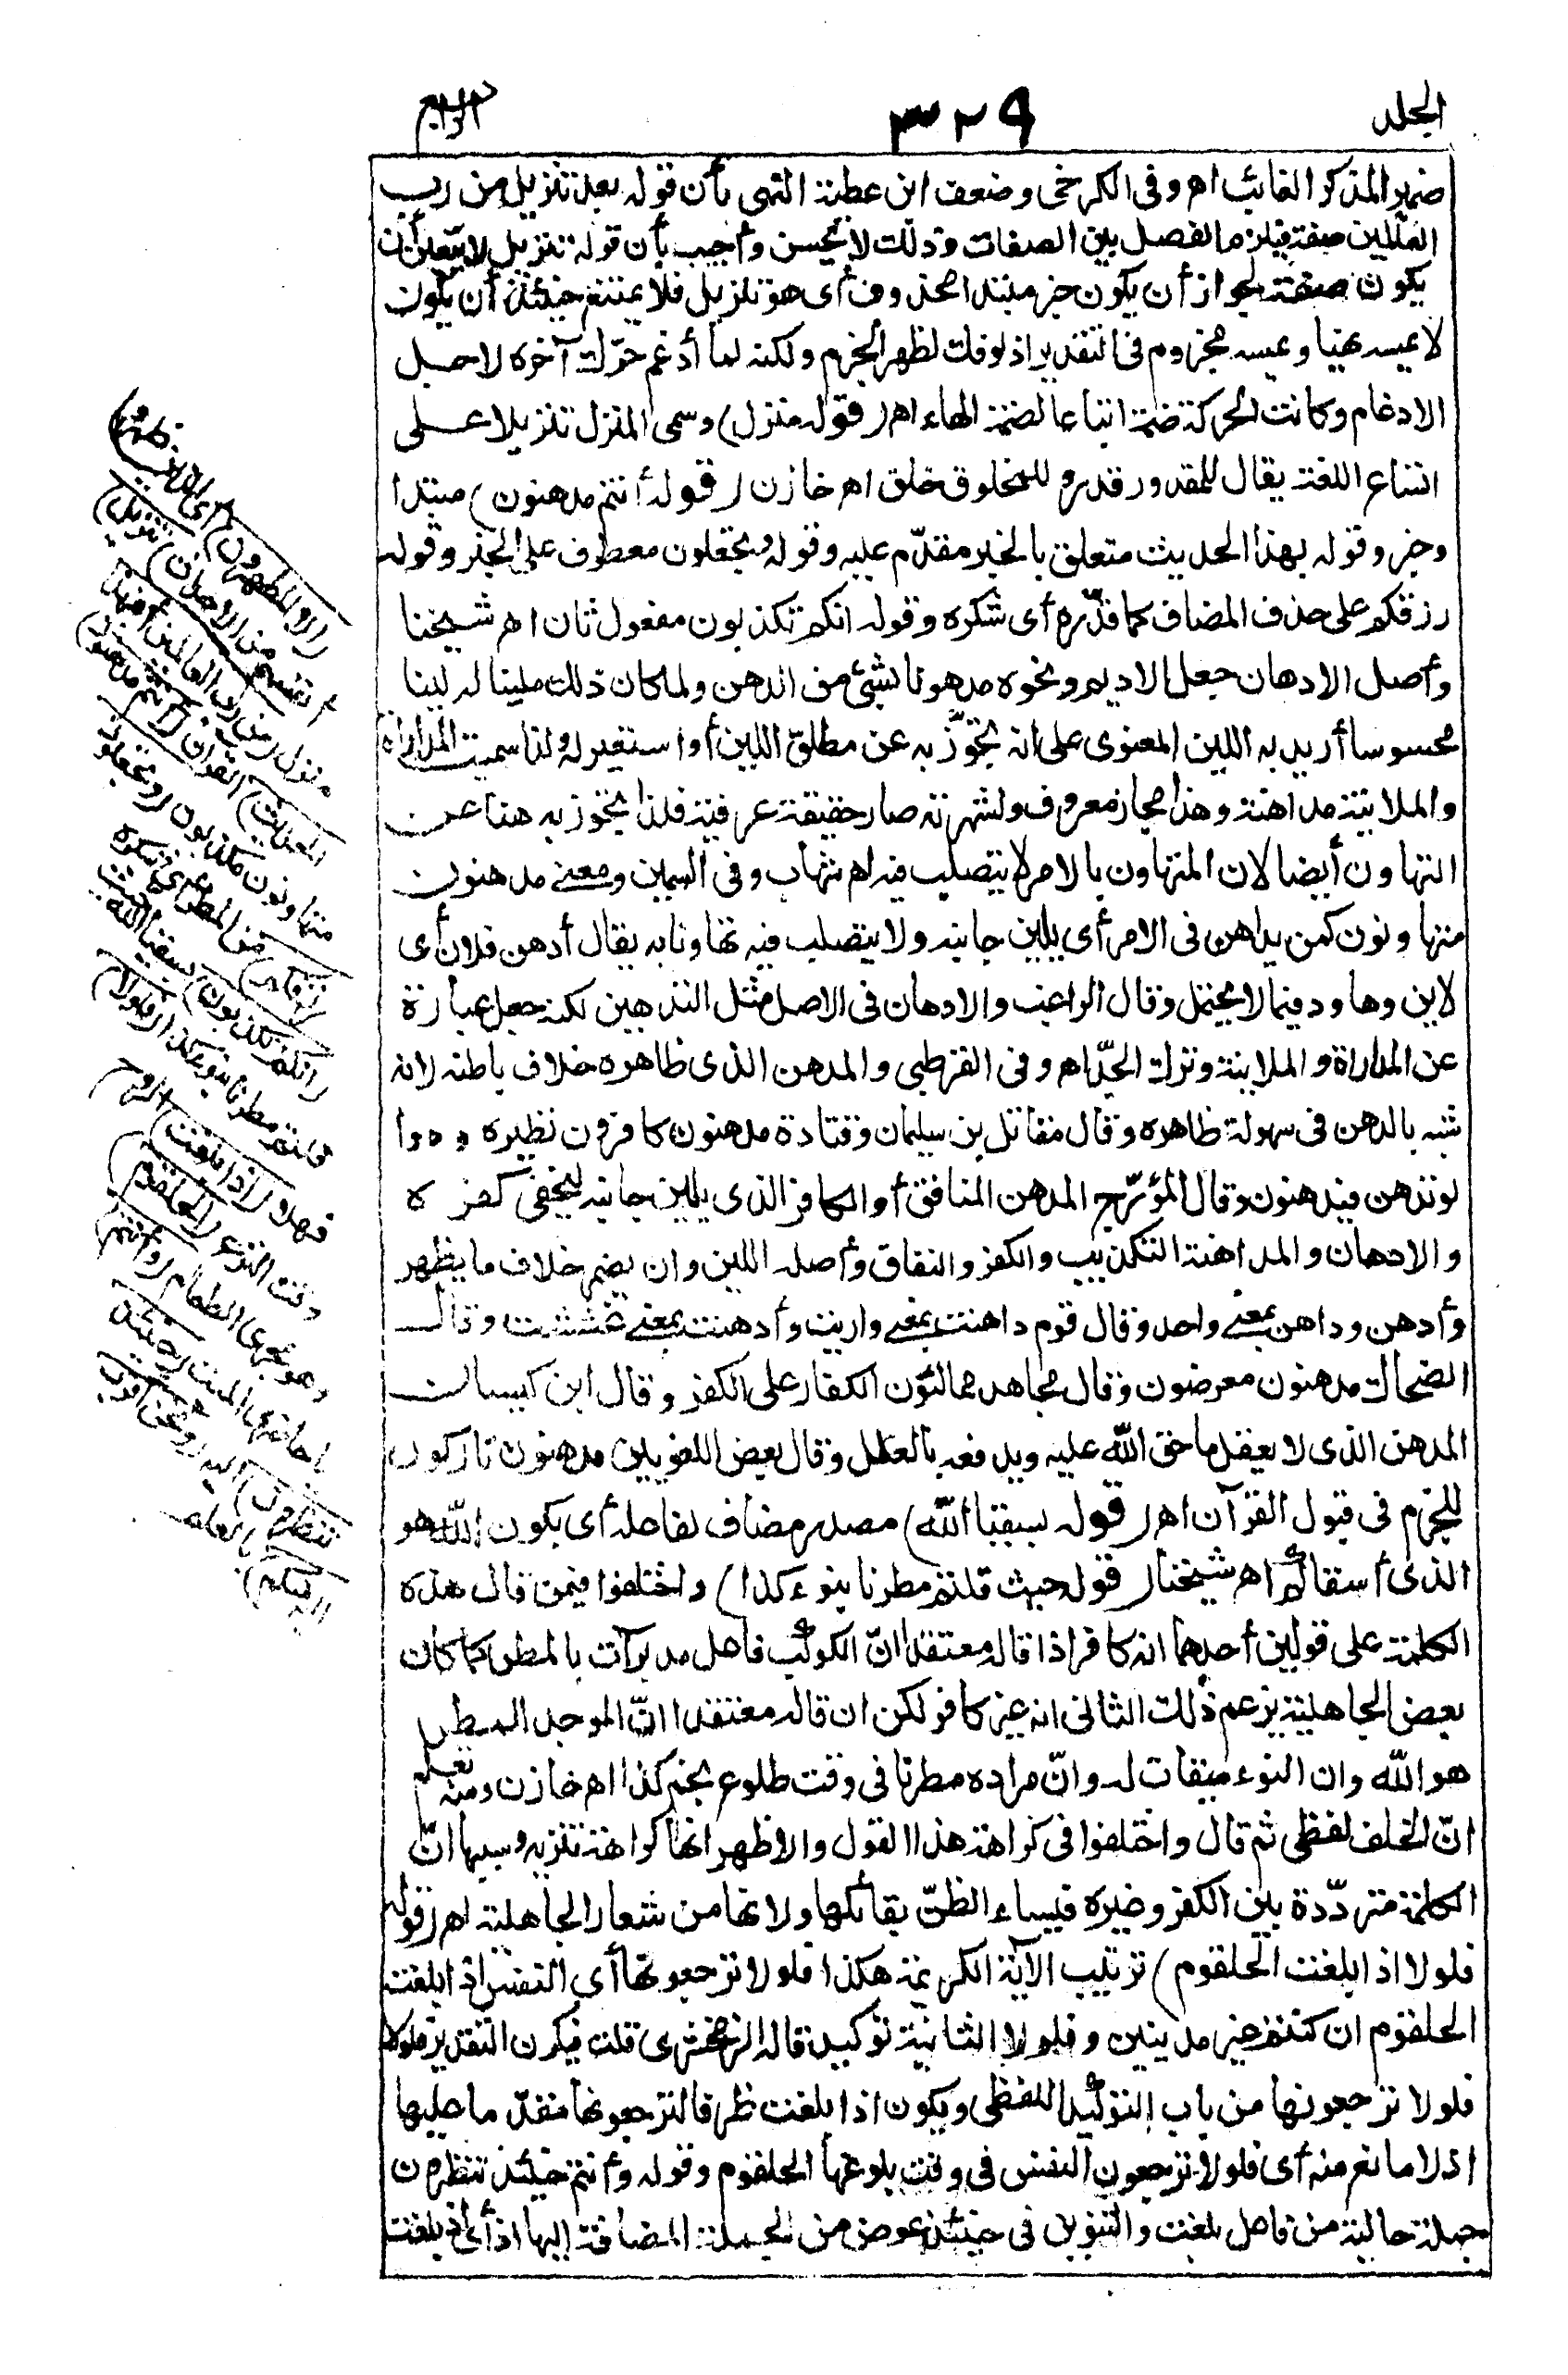 الجلد
٣٢٩
الرابع
ضمير المذكر الغائب اه وفى الكرخى وضعف ابن عطية النهى بأن قوله بعد تنزيل من رب
العالمين صفة فيلزم الفصل بين الصفات وذلك لا يحسن وأجيب بأن قوله تنزيل لا يتعين أن
يكون صفة لجواز أن يكون خبر مبتدا محذوف أى هو تنزيل فلا يمتنع حينئذ أن يكون
لا يمسه نهيا ويمسه مجزوم فى التقدير اذ لو فك لظهر الجزم ولكنه لما أدغم حرّك آخره لاجل
الادغام وكانت الحركة ضمة اتباعا لضمة الهاء اه (قوله منزل) وسمى المنزل تنزيلا على
اتساع اللغة يقال للمقدور قدر وللمخلوق خلق اه خازن (قوله أنتم مدهنون) مبتدا
وخبر وقوله بهذا الحديث متعلق بالخبر مقدّم عليه وقوله وتجعلون معطوف على الخبر وقوله
رزقكم على حذف المضاف كما قدّره أى شكره وقوله انكم تكذبون مفعول ثان اه شيخنا
وأصل الادهان جعل الاديم ونحوه مدهونا بشئ من الدهن ولما كان ذلك ملينا له لينا
محسوسا أريد به اللين المعنوى على انه تجوّز به عن مطلق اللين أو استعير له ولذا سميت المداراة
والملاينة مداهنة وهذا مجاز معروف ولشهرته صار حقيقة عرفية فلذا تجوز به هنا عن
التهاون أيضا لان المتهاون بالامر لا يتصلب فيه اه شهاب وفى السمين ومعنى مدهنون
متهاونون كمن يداهن فى الامر أى يلين جانبه ولا يتصلب فيه تهاونا به يقال أدهن فلان أى
لاين وهاود فيما لا يحتمل وقال الراغب والادهان فى الاصل مثل التدهين لكن جعل عبارة
عن المداراة والملاينة وترك الجدّ اه وفى القرطبى والمدهن الذى ظاهره خلاف باطنه لانه
شبه بالدهن فى سهولة ظاهره وقال مقاتل بن سليمان وقتادة مدهنون كافرون نظيره ودوا
لو تدهن فيدهنون وقال المؤرّج المدهن المنافق أو الكافر الذى يلين جانبه ليخفى كفره
والادهان والمداهنة التكذيب والكفر والنفاق وأصله اللين وان يضم خلاف ما يظهر
وأدهن وداهن بمعنى واحد وقال قوم داهنت بمعنى واريت وأدهنت بمعنى غششت وقال
الضحاك مدهنون معرضون وقال مجاهد ممالئون الكفار على الكفر وقال ابن كيسان
المدهن الذى لا يعقل ما حق الله عليه ويدفعه بالعلل وقال بعض اللغويين مدهنون تاركون
للجزم فى قبول القرآن اه (قوله بسقيا الله) مصدر مضاف لفاعله أى بكون الله هو
الذى أسقاكم اه شيخنا (قوله حيث قلتم مطرنا بنوء كذا) واختلفوا فيمن قال هذه
الكلمة على قولين أحدهما انه كافر اذا قاله معتقدا انّ الكوكب فاعل مدبر آت بالمطر كما كان
بعض الجاهلية يزعم ذلك الثانى انه غير كافر لكن ان قاله معتقدا انّ الموجد المطر
هو الله وان النوء ميقات له وانّ مراده مطرنا فى وقت طلوع نجم كذا اه خازن ومنه تعلم
انّ الخلف لفظى ثم قال واختلفوا فى كراهة هذا القول والاظهر انها كراهة تنزيه وسببها انّ
الكلمة متردّدة بين الكفر وغيره فيساء الظنّ بقائلها ولانها من شعار الجاهلية اه (قوله
فلولا اذا بلغت الحلقوم) ترتيب الآية الكريمة هكذا فلولا ترجعونها أى النفس اذا بلغت
الحلقوم ان كنتم غير مدينين وفلولا الثانية توكيد قاله الزمخشرى قلت فيكون التقدير فلولا
فلولا ترجعونها من باب التوكيد اللفظى ويكون اذا بلغت ظرفا لترجعونها مقدّما عليها
اذ لا مانع منه أى فلولا ترجعون النفس فى وقت بلوغها الحلقوم وقوله وأنتم حينئذ تنظرون
جملة حالية من فاعل بلغت والتنوين فى حينئذ عوض من الجملة المضافة اليها اذ أى اذ بلغت
(الا المطهرون) أى الذين طهروا
أنفسهم من الاحداث (تنزيل)
منزل (من رب العالمين أفبهذا
الحديث) القرآن (أنتم مدهنون)
متهاونون مكذبون (وتجعلون
رزقكم) من المطر أى شكره
(انكم تكذبون) بسقيا الله حيث
قلتم مطرنا بنوء كذا (فلولا)
فهلا (اذا بلغت) الروح
وقت النزع (الحلقوم)
وهو مجرى الطعام (وأنتم)
يا حاضرى الميت (حينئذ
تنظرون) اليه (ونحن أقرب
اليه منكم) بالعلم